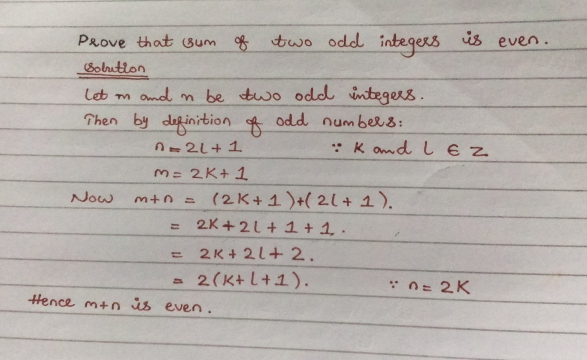 Prove that sum of two odd integers is even.
Solution
Let m and n be two odd integers.
Then by definition of odd numbers:
n = 2l + 1 ∵ K and l ∈ Z
m = 2K + 1
Now m+n = (2K + 1)+(2l + 1).
= 2K + 2l + 1 + 1.
= 2K + 2l + 2.
= 2(K + l + 1). ∵ n = 2K
Hence m+n is even.